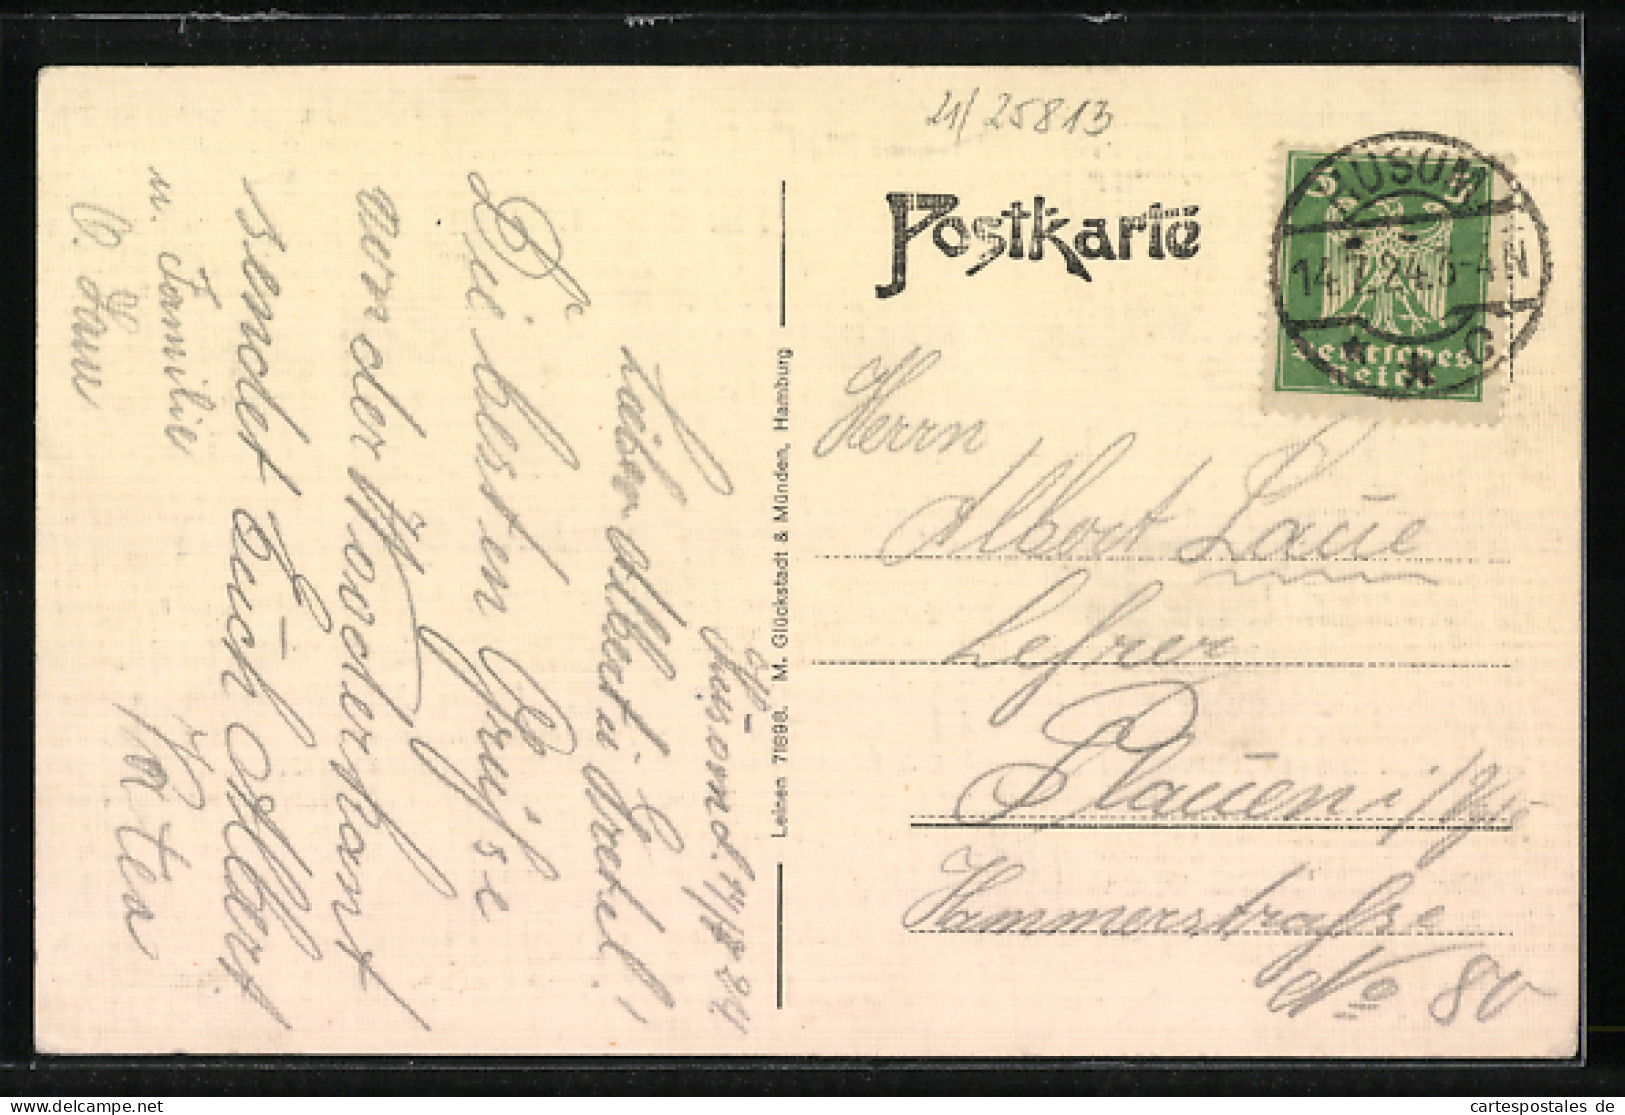 21/25813
Postkarte
HUSUM
14.7.24.3-4N
* * C
5
Deutsches
Reich
Herrn
Albert Laue
Lehrer
Plauen i/Vgtl.
Hammerstraße
No 80
Leinen 71898. M. Glückstadt & Münden, Hamburg
Husum d. 14/7 24
Lieber Albert u Gretel!
Die besten Grüsse
von der Waterkant
sendet Euch Albert
u. Familie